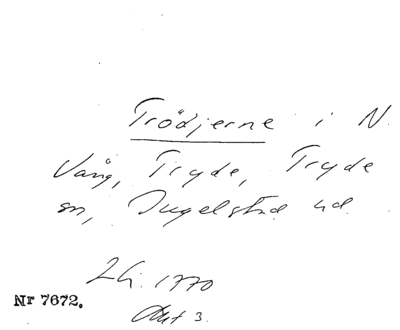 Trödjerne i N
Vång, Tryde, Tryde
sn, Ingelstad hd
Lh. 1770
Nr 7672.
Akt 3.